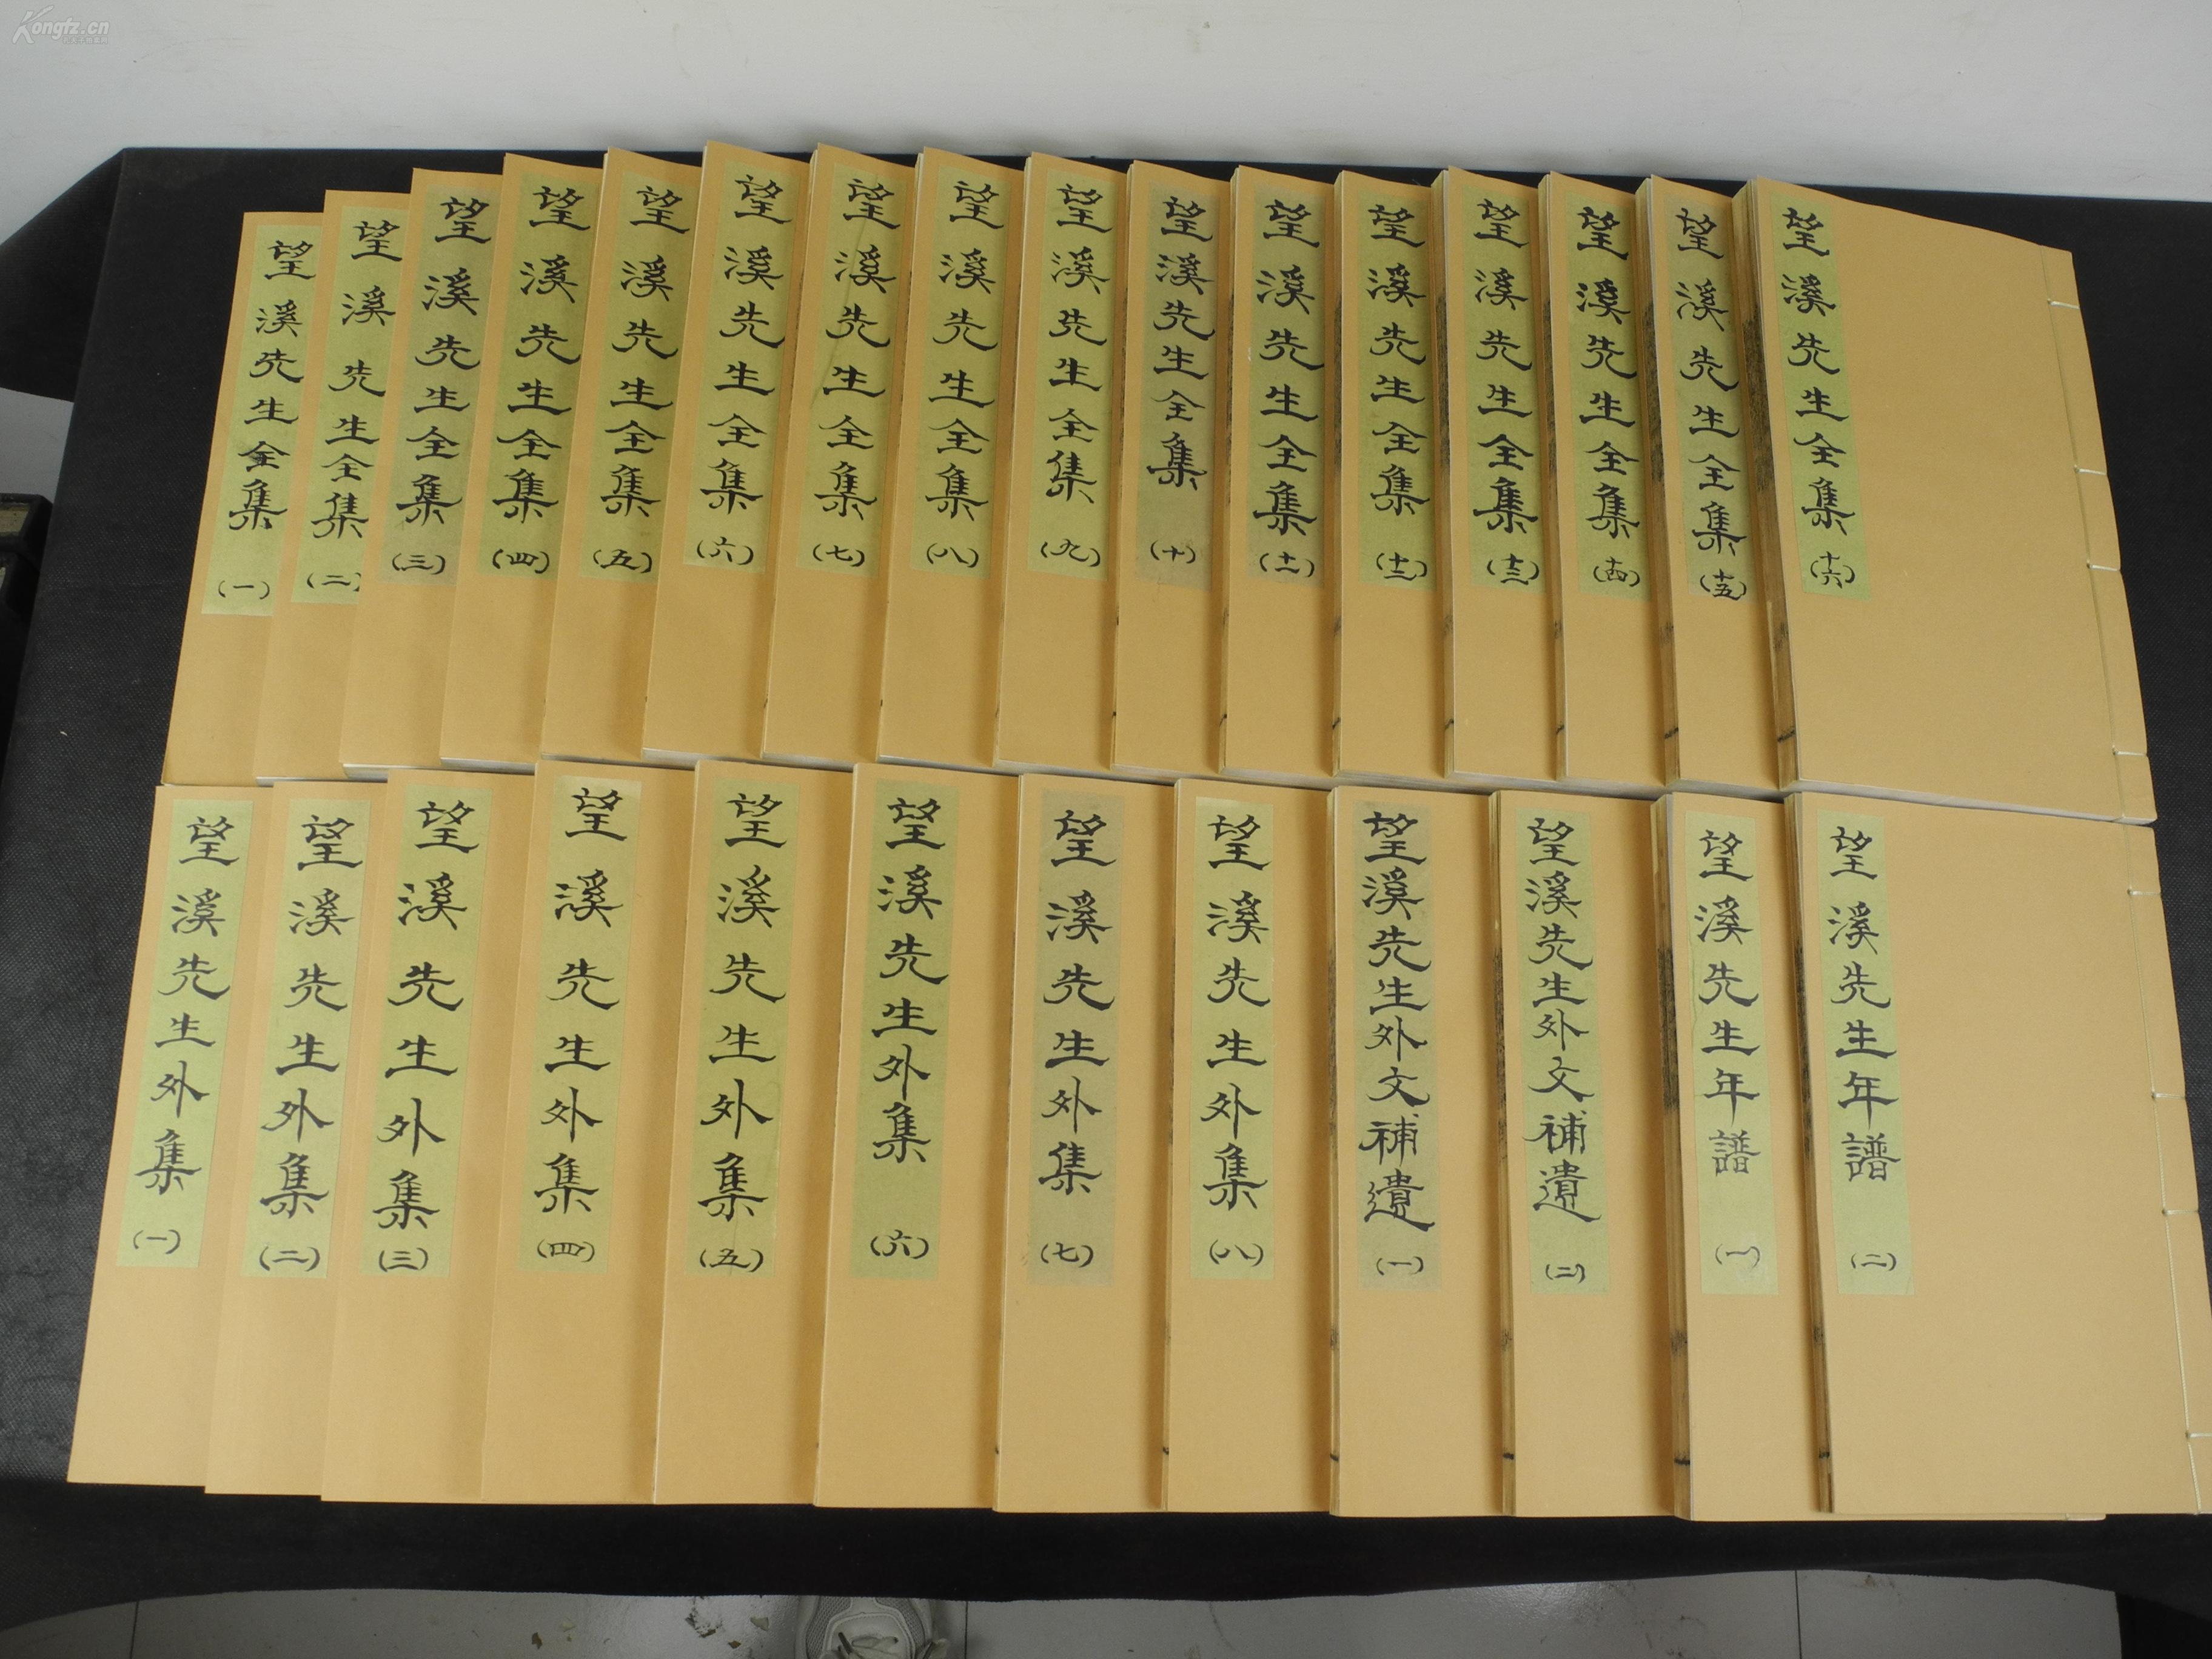 Kongfz.cn
望溪先生全集(一)
望溪先生全集(二)
望溪先生全集(三)
望溪先生全集(四)
望溪先生全集(五)
望溪先生全集(六)
望溪先生全集(七)
望溪先生全集(八)
望溪先生全集(九)
望溪先生全集(十)
望溪先生全集(十一)
望溪先生全集(十二)
望溪先生全集(十三)
望溪先生全集(十四)
望溪先生全集(十五)
望溪先生全集(十六)
望溪先生外集(一)
望溪先生外集(二)
望溪先生外集(三)
望溪先生外集(四)
望溪先生外集(五)
望溪先生外集(六)
望溪先生外集(七)
望溪先生外集(八)
望溪先生外文補遺(一)
望溪先生外文補遺(二)
望溪先生年譜(一)
望溪先生年譜(二)